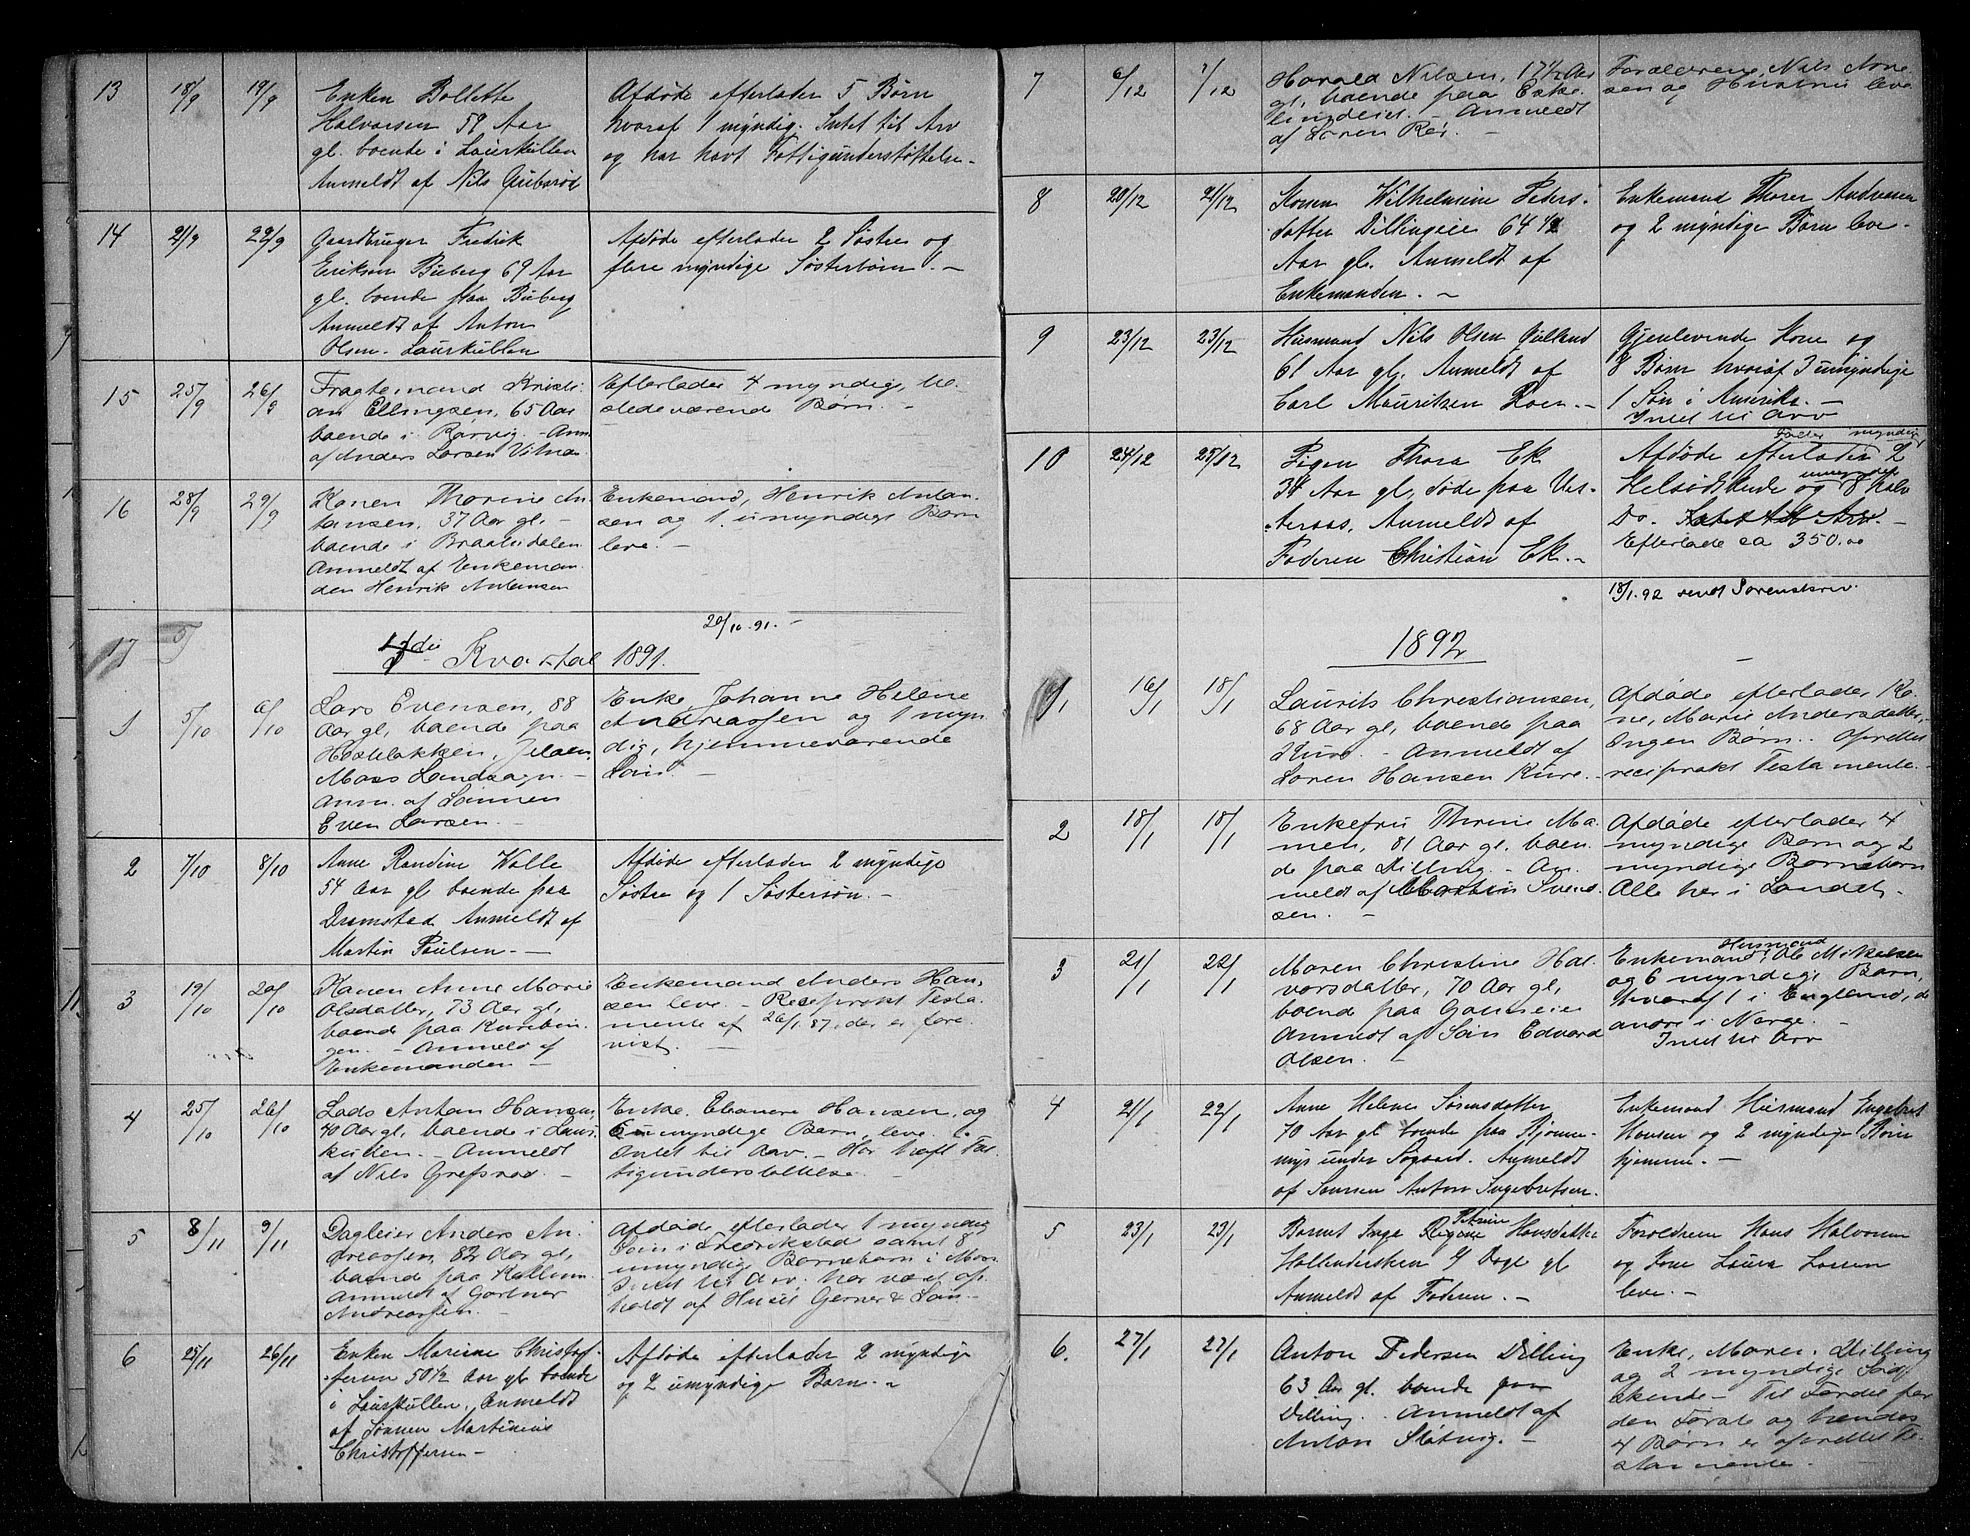 13 18/9 19/9 Enken Bollette
Halvorsen 59 Aar
gl. boende i Laurkullen
Anmeldt af Nils
Afdøde efterlader 5 Børn
hvoraf 1 myndig. Intet til Arv
og har havt Fattigunderstøttelse.
14 21/9 22/9 Gaardbruger Fredrik
Eriksen Büberg 69 Aar
gl. boende paa Büberg
Anmeldt af Anton
Olsen Laurkullen
Afdøde efterlader 2 Søstre og
flere myndige Søsterbørn. —
15 25/9 26/9 Fragtemand Kristi-
an Ellingsen, 65 Aar
boende i Rørvig. - Anm.
af Anders Larsen
Efterlader 4 myndig, til
stedeværende Børn. -
16 28/9 29/9 Konen Thorine An-
tonsen, 37 Aar gl. -
boende i Braatedalen
Anmeldt af Enkeman
den Henrik Antonsen
Enkemand, Henrik Anton-
sen og 1 umyndigt Barn
leve. -
20/10 91. -
17 5/
Kvartal 1891.
1 5/10 6/10 Lars Evensen, 88
Aar gl, boende paa
Jeløen,
Moss Landsogn. -
Anm. af Sønnen
Even Larsen. -
Enke, Johanne Helene
Andreassen og 1 myn
dig, hjemmeværende
Søn. -
2 7/10 8/10 Anne Randine Walle
54 Aar gl boende paa
Dramstad Anmeldt af
Martin Paulsen. -
Afdøde efterlader 2 myndige
Søstre og 1 Søstersøn. -
3 19/10 20/10 Konen Anne Marie
Olsdatter, 73 Aar gl,
boend paa Kurebin
gen. - Anmeld af
Enkemanden -
Enkemand Anders Han-
sen leve. - Reciprokt Testa-
mente af 26/1. 87, der er fore
vist. -
4 25/10 26/10 Lods Anton Hansen,
40 Aar gl, boende i Laur
kullen. - Anmeldt
af Nils Grefsrød -
Enke, Eleonore Hansen, og
6 umyndige Børn, leve. -
Intet til Arv. - Har haft Fat-
tigunderstøttelse. -
5 8/11 9/11 Dagleier Anders An-
dreassen, 82 Aar gl,
boend paa Kallum
Anmeldt af Gartner
Andreassen. -
Afdøde efterlader 1 myndig
Søn i Fredrikstad samt 8
umyndige Børnebørn i Moss
Intet til Arv. har været op-
holdt af Huset Gerner & Søn. -
6 25/11 26/11 Enken Marine Christof-
fersen 50 1/2 Aar gl boende
i Laurkullen, Anmeldt
af Sønnen Martinius
Christoffersen -
Afdøde efterlader 2 myndige
og 2 umyndige Børn. -
7 6/12 7/12 Harald Nilsen, 17 1/2 Aar
gl, boende paa Eske
lundeiet. - Anmeldt
af Søren Rør. -
Forældrene, Nils Arne
sen og Hustru leve
8 20/12 21/12 Konen Wilhelmine Peders-
datter Dillingeie 64 1/2
Aar gl. Anmeldt af
Enkemanden. -
Enkemand Thorer Andresen
og 2 myndige Børn leve. -
9 23/12 23/12 Husmand Nils Olsen
61 Aar gl. Anmeldt af
Carl Mauritzen Roer. -
Gjenlevende Kone og
8 Børn hvoraf 3 umyndige
1 Søn i Amerika. -
Intet til Arv
10 24/12 25/12 Pigen Thora Ek
Aar gl, døde paa Vas-
teraas, Anmeldt af
Faderen Christian Ek. -
Fader myndige
Afdøde efterlader 2
Helsødskende og umyndige 8 halv
Do. Intet til Arv. -
Efterlade ca 350.00
18/1. 92 sendt Sorenskriv.
1892
1 16/1 18/1 Laurits Christiansen,
68 Aar gl, boende paa
Kure. - Anmeldt af
Søren Hansen Kure. -
Afdøde efterlader Ko-
ne, Marie Andersdatter,
Ingen Børn. - Oprettet
reciprokt Testamente. -
2 18/1 18/1 Enkefru Thrine Ma
men, 81 Aar gl, boen
de paa Dilling - An-
meldt af Martin Svend-
sen. -
Afdøde efterlader 4
myndige Børn og 2
myndige Børnebørn
Alle her i Landet. -
3 21/1 22/1 Maren Christine Hal-
vorsdatter, 70 Aar gl,
boend paa
Anmeldt af Søn Edvard
Olsen. -
Husmand
Enkemand, Ole Mikelsen
og 6 myndige Børn,
hvoraf 1 i England, de
andre i Norge. -
Intet til Arv
4 21/1 22/1 Anne Helene Sørensdatter
70 Aar gl boende paa
under Søgaard. Anmeldt
af Sønnen Anton Ingebretsen. -
Enkemand Husmand Engebret
Hansen og 2 myndige Børn
hjemme. -
5 23/1 23/1 Petrine
Barnet Inga Regine Hansdatter
Hollenderskuen Dage gl
Anmeldt af Faderen. -
Forældrene Hans Halvorsen
og Kone Laura Larsen
leve. -
6. 27/1 27/1 Anton Pedersen Dilling
63 Aar gl. boende paa
Dilling. Anmeldt af
Anton -
Enke, Maren Dilling
og 2 myndige Sød-
skende - Til Fordel for
den Første og hendes
4 Børn er oprettet Te-
stamente. -